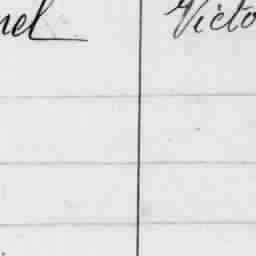 nel Victo